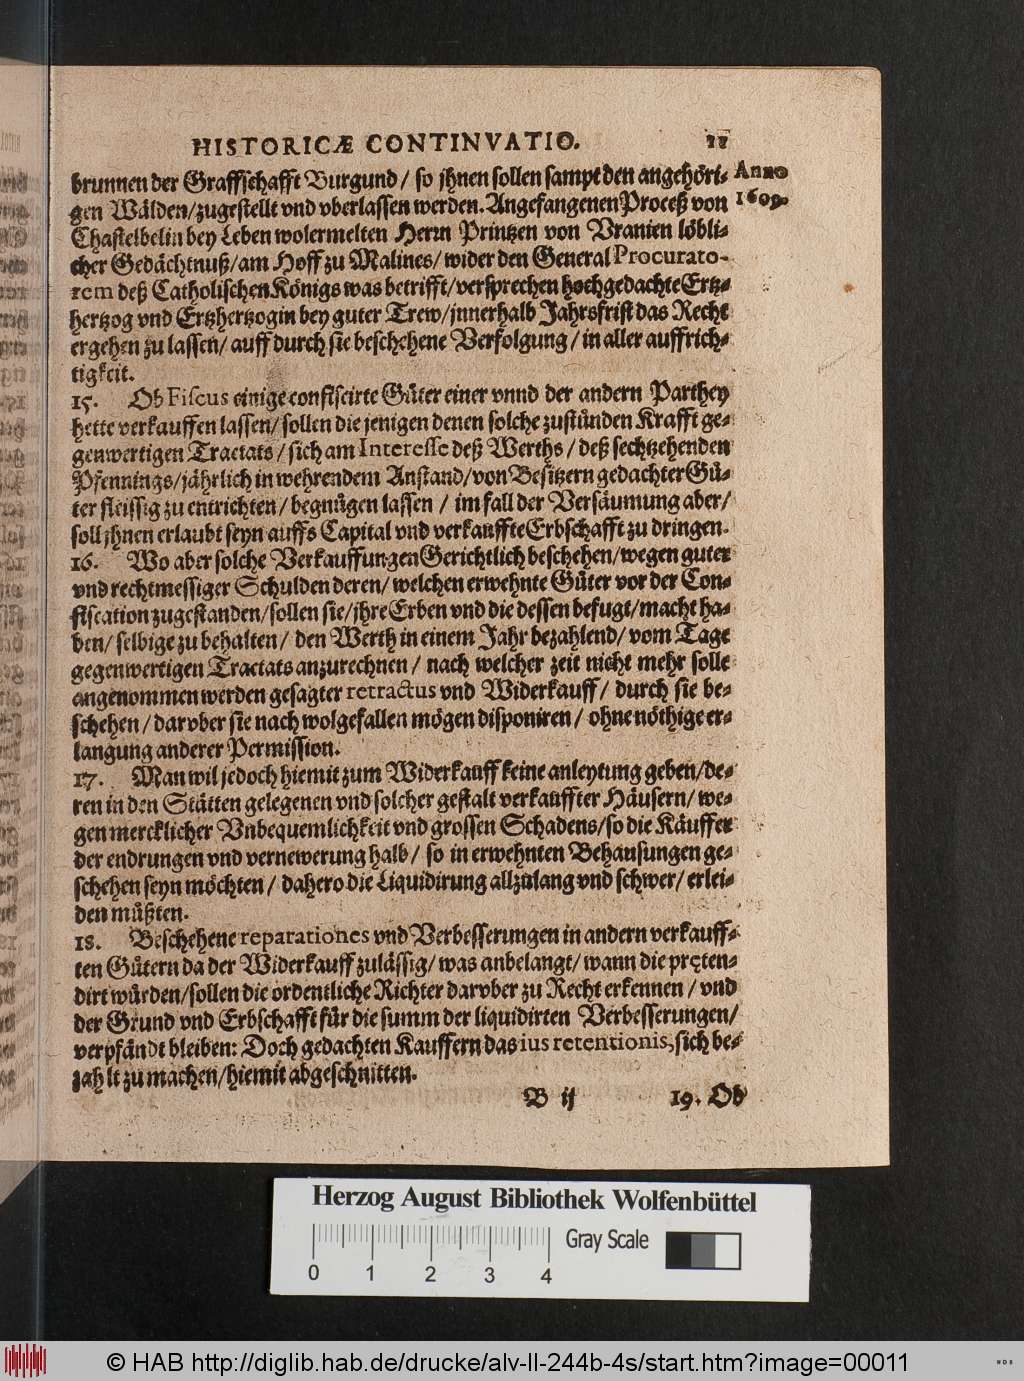 HISTORICÆ CONTINVATIO. 11
brunnen der Graffschafft Burgund / so jhnen sollen sampt den angehöri- Anno
gen Wälden/zugestellt vnd vberlassen werden. Angefangenen Proceß von 1609.
Chastelbelin bey Leben wolermelten Herrn Printzen von Vranien löbli-
cher Gedächtnuß/am Hoff zu Malines/wider den General Procurato-
rem deß Catholischen Königs was betrifft/versprechen hochgedachte Ertz-
hertzog vnd Ertzhertzogin bey guter Trew/jnnerhalb Jahrsfrist das Recht
ergehen zu lassen/ auff durch sie beschehene Verfolgung / in aller auffrich-
tigkeit.
15. Ob Fiscus einige confiscirte Güter einer vnnd der andern Parthey
hette verkauffen lassen/sollen die jenigen denen solche zustünden Krafft ge-
genwertigen Tractats / sich am Interesse deß Werths / deß sechtzehenden
Pfennings/jährlich in wehrendem Anstand/von Besitzern gedachter Gü-
ter fleissig zu entrichten / begnügen lassen / im fall der Versäumung aber/
soll jhnen erlaubt seyn auffs Capital vnd verkauffte Erbschafft zu dringen.
16. Wo aber solche Verkauffungen Gerichtlich beschehen/wegen guter
vnd rechtmessiger Schulden deren/ welchen erwehnte Güter vor der Con-
fiscation zugestanden/sollen sie/jhre Erben vnd die dessen befugt/macht ha-
ben/ selbige zu behalten / den Werth in einem Jahr bezahlend/ vom Tage
gegenwertigen Tractats anzurechnen / nach welcher zeit nicht mehr solle
angenommen werden gesagter retractus vnd Widerkauff / durch sie be-
schehen / darvber sie nach wolgefallen mögen disponiren / ohne nöthige er-
langung anderer Permission.
17. Man wil jedoch hiemit zum Widerkauff keine anleytung geben/de-
ren in den Stätten gelegenen vnd solcher gestalt verkauffter Häusern/ we-
gen mercklicher Vnbequemlichkeit vnd grossen Schadens/so die Käuffer
der endrungen vnd vernewerung halb / so in erwehnten Behausungen ge-
schehen seyn möchten / dahero die Liquidirung allzulang vnd schwer/ erlei-
den müßten.
18. Beschehene reparationes vnd Verbesserungen in andern verkauff-
ten Gütern da der Widerkauff zulässig/ was anbelangt/ wann die pręten-
dirt würden/sollen die ordentliche Richter darvber zu Recht erkennen / vnd
der Grund vnd Erbschafft für die summ der liquidirten Verbesserungen/
verpfändt bleiben: Doch gedachten Kauffern das ius retentionis, sich be-
zahlt zu machen/hiemit abgeschnitten.
B ij 19. Ob
Herzog August Bibliothek Wolfenbüttel
Gray Scale
0 1 2 3 4
© HAB http://diglib.hab.de/drucke/alv-ll-244b-4s/start.htm?image=00011